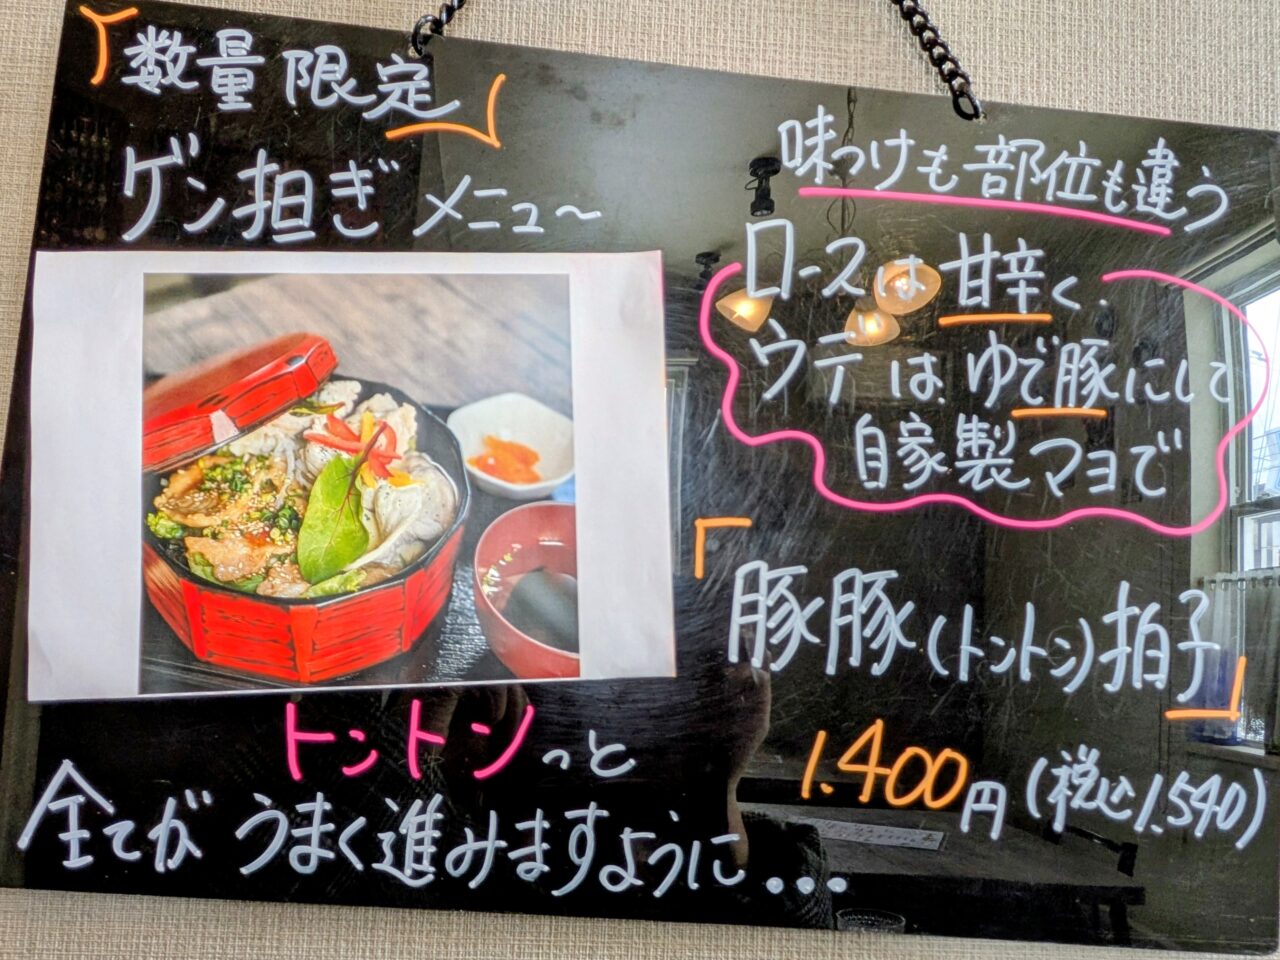 「数量限定」
ゲン担ぎメニュ〜
味つけも部位も違う
ロースは甘辛く、
ウデは、ゆで豚にして
自家製マヨで
「豚豚(トントン)拍子」
1.400円(税込1.540)
トントンっと
全てがうまく進みますように...